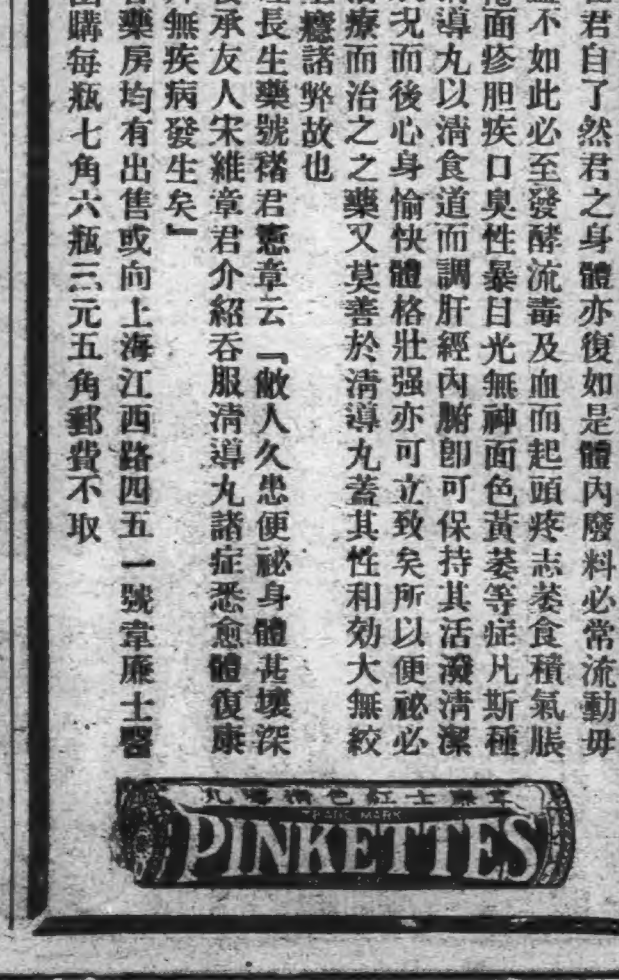 君自了然君之身體亦復如是體內廢料必常流動毋
不如此必至發酵流毒及血而起頭疼志萎食積氣脹
面疹胆疾口臭性暴目光無神面色黃萎等症凡斯種
導丸以清食道而調肝經內腑卽可保持其活潑清潔
況而後心身愉快體格壯强亦可立致矣所以便祕必
療而治之之藥又莫善於清導丸蓋其性和効大無絞
癮諸弊故也
長生藥號褚君憲章云『敝人久患便祕身體甚壞深
承友人宋維章君介紹吞服清導丸諸症悉愈體復康
無疾病發生矣』
藥房均有出售或向上海江西路四五一號韋廉士醫
購每瓶七角六瓶三元五角郵費不取
韋廉士紅色清導丸
TRADE MARK
PINKETTES